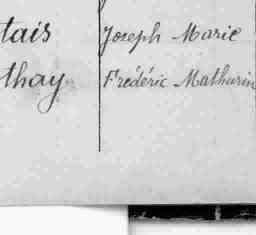 tais Joseph Marie
thay Frédéric Mathurin